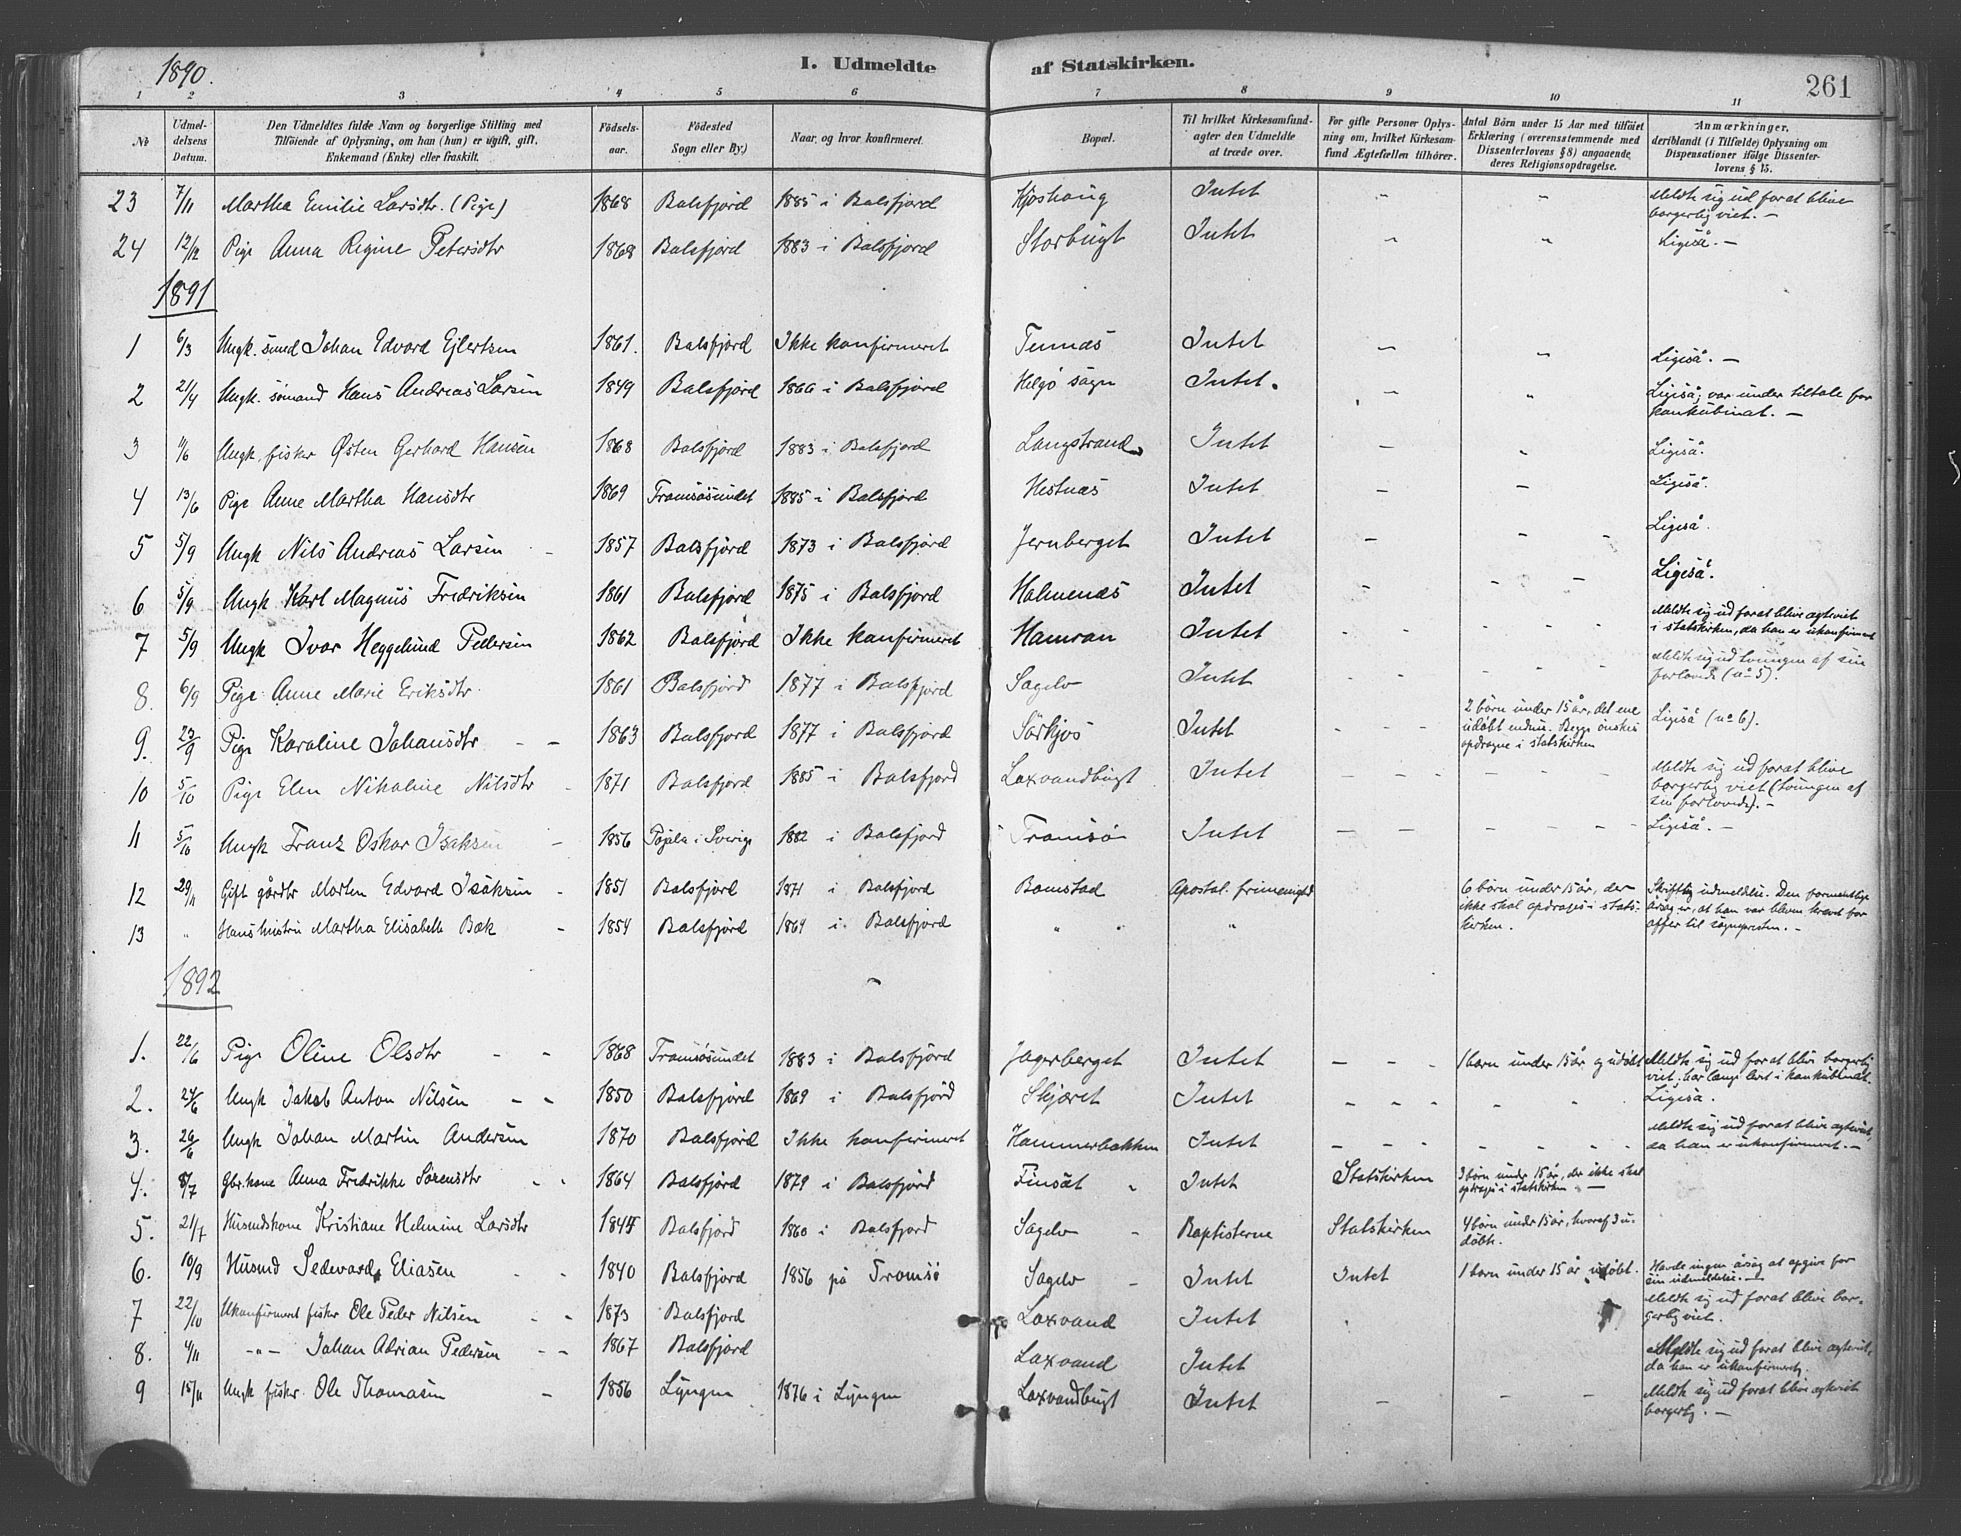 1890.
I. Udmeldte af Statskirken.
261
1 2 3 4 5 6 7 8 9 10 11
№
Udmel-
delsens
Datum.
Den Udmeldtes fulde Navn og borgerlige Stilling med
Tilføiende af Oplysning, om han (hun) er ugift, gift,
Enkemand (Enke) eller fraskilt.
Fødsels-
aar.
Fødested
Sogn eller By.)
Naar og hvor konfirmeret.
Bopæl.
Til hvilket Kirkesamfund-
agter den Udmeldte
at træde over.
For gifte Personer Oplys-
ning om, hvilket Kirkesam-
fund Ægtefællen tilhører.
Antal Børn under 15 Aar med tilføiet
Erklæring (overensstemmende med
Dissenterlovens § 8) angaaende
deres Religionsopdragelse.
Anmærkninger,
deriblandt (i Tilfælde) Oplysning om
Dispensationer ifølge Dissenter-
lovens § 15.
23 7/11 Martha Emilie Larsdtr. (Pige) 1868 Balsfjord 1885 i Balsfjord Hjoshaug Intet " " Meldte sig ud forat blive
borgerlig viet. —
24 12/12 Pige Anna Regine Petersdtr 1868 Balsfjord 1883 i Balsfjord Storbugt Intet " " Ligeså. —
1891
1 6/3 Ungk. smed Johan Edvard Ejlertsen 1861. Balsfjord Ikke konfirmeret Tennæs Intet — — Ligeså. —
2 21/4 Ungk. sømand Hans Andreas Larsen 1849 Balsfjord 1866 i Balsfjord Helgø sogn Intet. — " Ligeså; var under tiltale for
konkubinat. —
3 11/6 Ungk. fisker Østen Gerhard Hansen 1868 Balsfjord 1883 i Balsfjord Langstrand Intet — " Ligeså.
4 13/6 Pige Anne Martha Hansdtr 1869 Tromsøsundet 1885 i Balsfjord Hestnæs Intet — — Ligeså.
5 5/9 Ungk Nils Andreas Larsen — 1857 Balsfjord 1873 i Balsfjord Jernberget Intet — — - Ligeså.
6 5/9 Ungk Karl Magnus Fredriksen 1861 Balsfjord 1875 i Balsfjord Holmenæs Intet — — — Ligeså.
7 5/9 Ungk Ivar Heggelund Pedersen 1862 Balsfjord Ikke konfirmeret Hamran Intet - - - - - Meldte sig ud forat blive ægteviet
i statskirken, da han er ukonfirmeret
8. 6/9 Pige Anne Marie Eriksdtr. 1861 Balsfjord 1877 i Balsfjord Sagelv Intet - - - - - Meldte sig ud tvungen af sin
forlovede (no 5).
9. 23/9 Pige Karoline Johansdtr — — 1863 Balsfjord 1877 i Balsfjord Sørkjos Intet - - - 2 børn under 15 år, det ene
udøbt endnu. Begge ønskes
opdragne i statskirken Ligeså (no 6).
10 5/10 Pige Elen Nikoline Nilsdtr - 1871 Balsfjord 1885 i Balsfjord Laxvandbugt Intet — — — — — — — Meldte sig ud forat blive
borgerlig viet (tvungen af
sin forlovede). —
11 5/10 Ungk Franz Oskar Isaksen — 1856 Pajala i Sverige 1882 i Balsfjord Tromsø Intet — — — — — — — Ligeså. —
12 29/11 Gift gårdbr Morten Edvard Isaksen — 1851 Balsfjord 1871 i Balsfjord Bomstad Apostol. frimenighed 6 børn under 15 år, der
ikke skal opdrages i stats-
kirken. Skriftlig udmeldelse. Den formentlige
årsag er, at han var bleven krævet for
offer til sognepresten. —
13 " Hans hustru Martha Elisabeth Bæk — 1854 Balsfjord 1869 i Balsfjord " " "
1892
1. 22/6 Pige Oline Olsdtr - - 1868 Tromsøsundet 1883 i Balsfjord Jagerberget Intet — — - 1 barn under 15 år og udøbt Meldte sig ud forat blive borgerlig
viet. har længe levet i konkubinat.
2. 24/6 Ungk Jakob Anton Nilsen — — 1850 Balsfjord 1869 i Balsfjord Skjæret Intet — — — — - Ligeså.
3. 26/6 Ungk Johan Martin Andersen 1870 Balsfjord Ikke konfirmeret Hammerbakken Intet — — — — - - - Meldte sig ud forat blive ægteviet,
da han er ukonfirmeret. —
4. 8/7 Gbr.kone Anna Fredrikke Sørensdtr - - 1864 Balsfjord 1879 i Balsfjord Finsæt " Intet Statskirken 3 børn under 15 år, der ikke skal
opdrages i statskirken —
5. 21/7 Husmdskone Kristiane Helmine Larsdtr 1844 Balsfjord 1860 i Balsfjord Sagelv - Baptisterne Statskirken 4 børn under 15 år, hvoraf 3 u-
døbte.
6. 10/9 Husmd Sedevard Eliasen - - 1840 Balsfjord 1856 på Tromsø Sagelv - Intet Intet 1 barn under 15 år udøbt. Havde ingen årsag at opgive for
sin udmeldelse. —
7 22/10 Ukonfirmeret fisker Ole Peder Nilsen - - 1873 Balsfjord Laxvand Intet Meldte sig ud forat blive bor-
gerlig viet.
8. 4/11 —"— Johan Adrian Pedersen — — 1867 Balsfjord Laxvand Intet Meldte sig ud forat blive ægteviet,
da han er ukonfirmeret.
9 15/11 Ungk fisker Ole Thomasen — 1856 Lyngen 1876 i Lyngen Laxvandbugt Intet — — — Meldte sig ud forat blive ægteviet
borgerlig. —